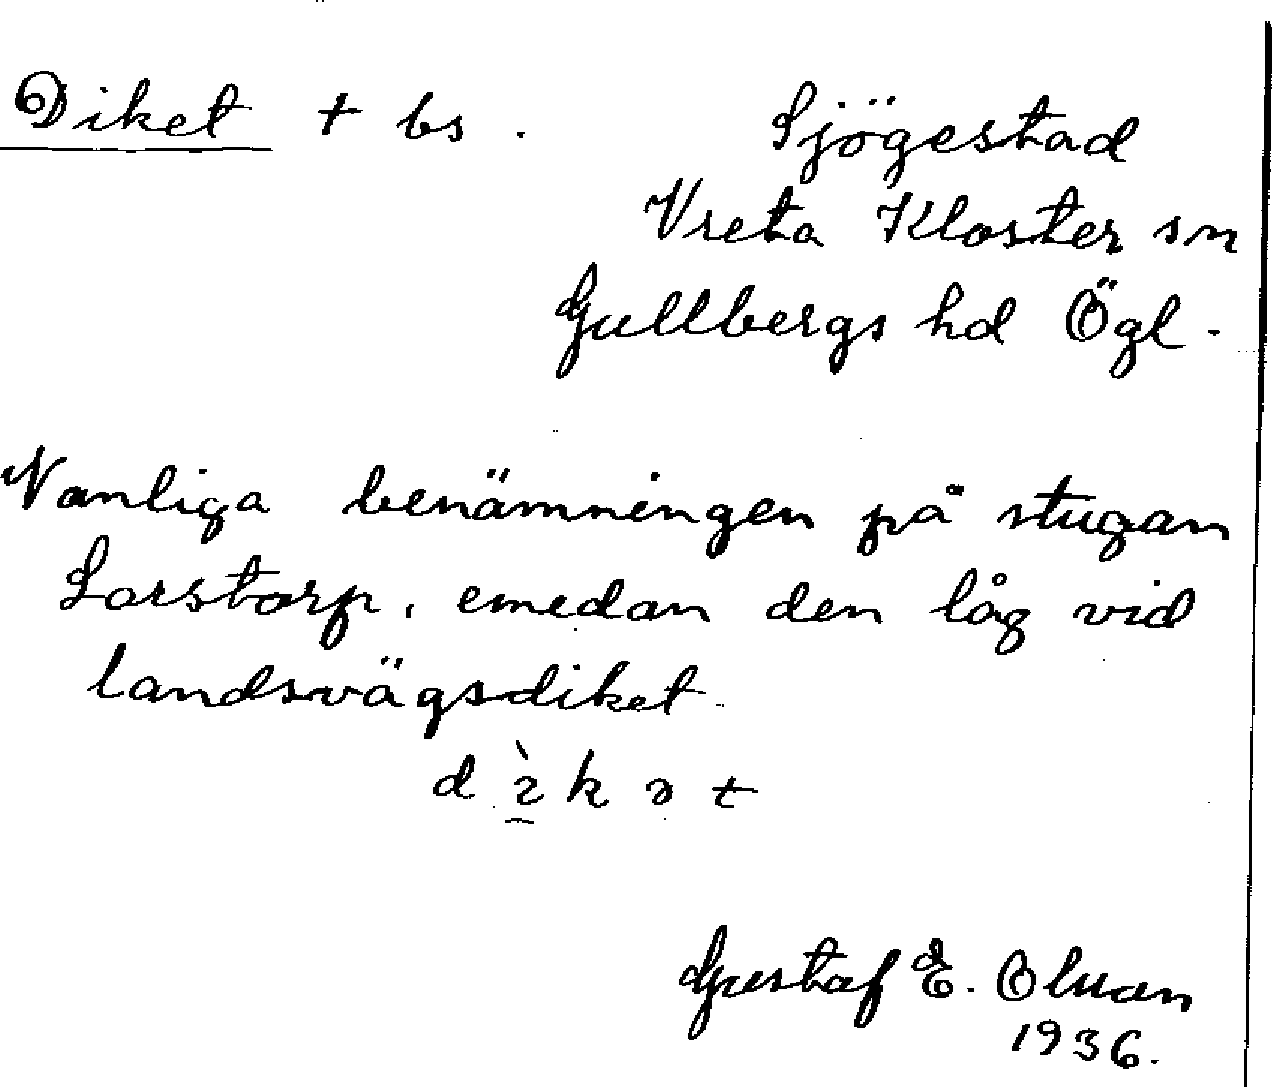 Diket + bs. Sjögestad
Vreta Kloster sn
Gullbergs hd Ögl.
Vanliga benämningen på stugan
Larstorp, emedan den låg vid
landsvägsdiket.
Gustaf E.
1936.